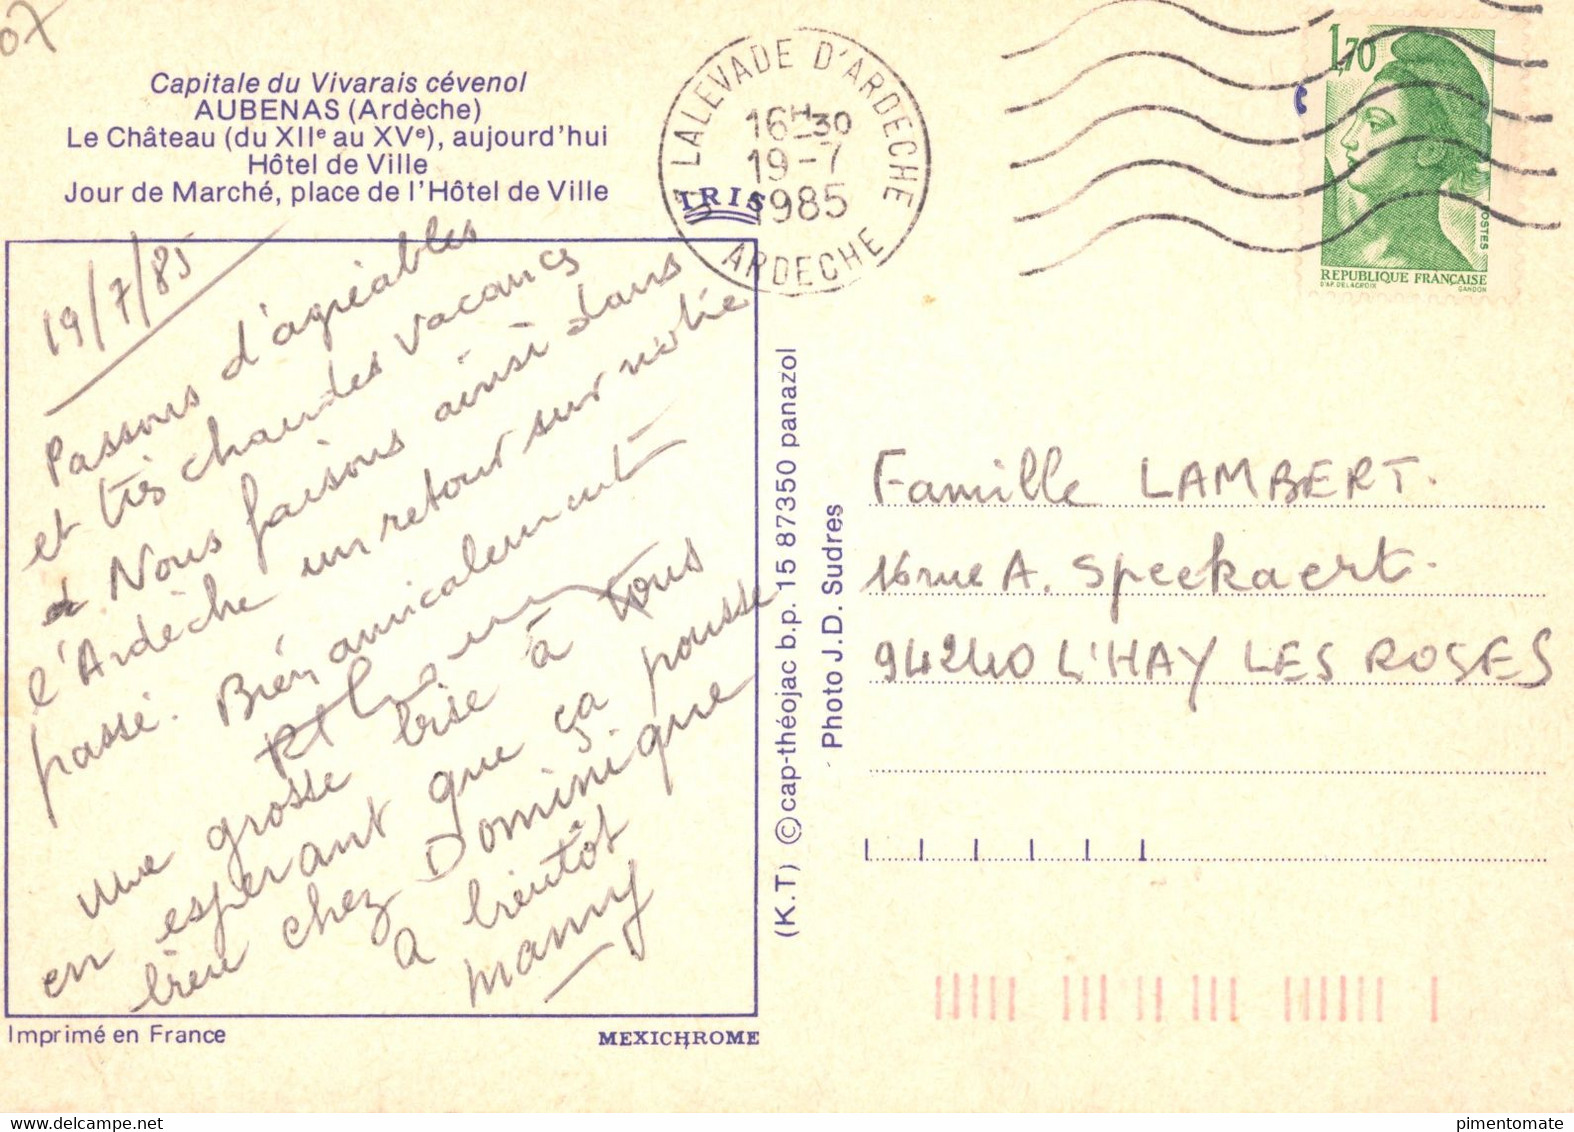 07
Capitale du Vivarais cévenol
AUBENAS (Ardèche)
Le Château (du XIIe au XVe), aujourd'hui
Hôtel de Ville
Jour de Marché, place de l'Hôtel de Ville
LALEVADE D'ARDECHE
16H30
19-7
1985
ARDECHE
IRIS
1,70
POSTES
REPUBLIQUE FRANÇAISE
D'AP. DELACROIX
GANDON
19/7/85
Passons d'agréables
et très chaudes vacances
Nous faisons ainsi dans
l'Ardèche un retour sur notre
passé. Bien amicalement
une grosse bise à tous
en esperant que ça pousse
bien chez Dominique
a bientôt
Mamy
Imprimé en France
MEXICHROME
(K.T) © cap-théojac b.p. 15 87350 panazol
Photo J.D. Sudres
Famille LAMBERT.
16 rue A. Speckaert.
94240 L'HAY LES ROSES
pimentomate | www.delcampe.net